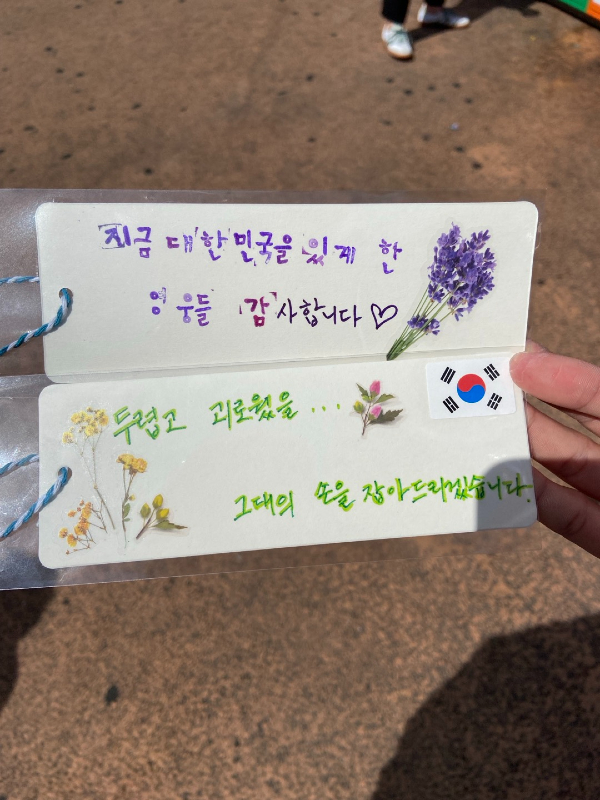 지금 대한민국을 있게 한
영웅들 감사합니다♡
두렵고 괴로웠을...
그대의 손을 잡아드리겠습니다.